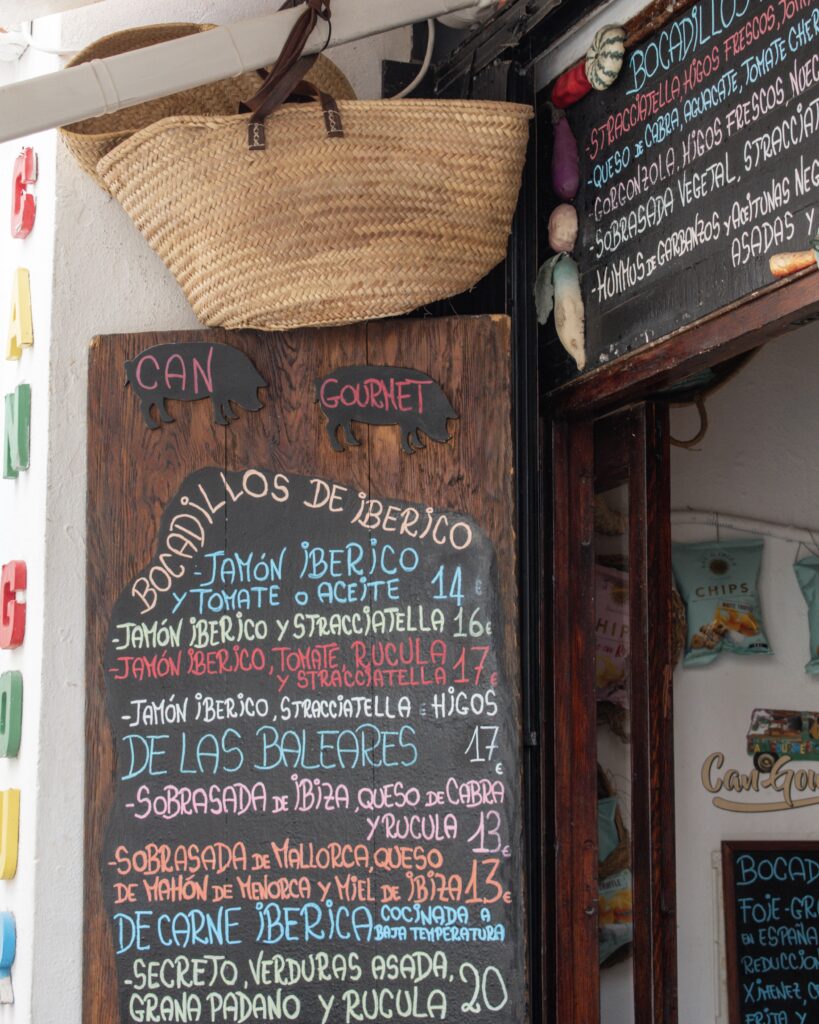 CAN GOU
CAN
GOURMET
BOCADILLOS DE IBERICO
-JAMÓN IBERICO
Y TOMATE O ACEITE 14€
-JAMÓN IBERICO Y STRACCIATELLA 16€
-JAMÓN IBERICO, TOMATE, RUCULA
Y STRACCIATELLA 17€
-JAMÓN IBERICO, STRACCIATELLA E HIGOS
DE LAS BALEARES 17€
-SOBRASADA DE IBIZA, QUESO DE CABRA
Y RUCULA 13€
-SOBRASADA DE MALLORCA, QUESO
DE MAHÓN DE MENORCA Y MIEL DE IBIZA 13€
DE CARNE IBERICA COCINADA A
BAJA TEMPERATURA
-SECRETO, VERDURAS ASADA,
GRANA PADANO Y RUCULA 20
BOCADILLOS
-STRACCIATELLA, HIGOS FRESCOS,
-QUESO DE CABRA, AGUACATE, TOMATE CHER
-GORGONZOLA, HIGOS FRESCOS, NUEC
-SOBRASADA VEGETAL, STRACCIAT
-HUMMUS DE GARBANZOS Y ACEITUNAS NEG
ASADAS Y
CHIPS
CHIP
Can Gou
BOCA
FOIE-GRA
EN ESPAÑA
REDUCCION
XIMENEZ, C
FRITA Y